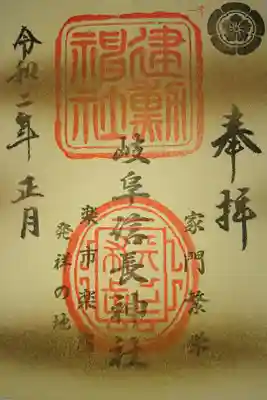 奉拝
家門繁栄
建勲神社
岐阜信長神社
楽市楽座
発祥の地
令和二年 正月